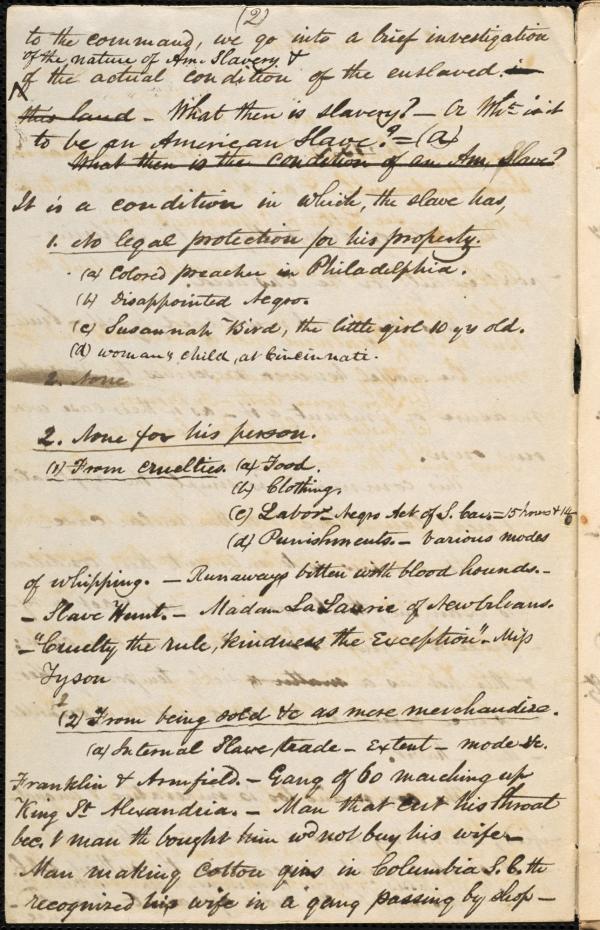 (2)
to the command, we go into a brief investigation
of the nature of Am. Slavery, &
of the actual condition of the enslaved. in
this land - What then is slavery? - Or Wht is it
to be an American Slave? = (a)
What then is the condition of an Am. Slave?
It is a condition in which, the slave has,
1. No legal protection for his property.
(a) Colored preacher in Philadelphia.
(b) Disappointed Negro.
(c) Susannah Bird, the little girl 10 yrs old.
(d) woman & child, at Cincinnati.
2. None
2. None for his person.
(1) From cruelties. (a) Food.
(b) Clothing.
(c) Labor - Negro Act of S. Car. = 15 hours & 14
(d) Punishments. - Various modes
of whipping. - Runaways bitten with blood hounds. -
- Slave Hunt. - Madam La Laurie of New Orleans.
- "Cruelty the rule, kindness the Exception" - Miss
Tyson
(2) From being sold &c as mere merchandize.
(a) Internal Slave trade - Extent - mode &c.
Franklin & Armfield. - Gang of 60 marching up
King St. Alexandria. - Man that cut his throat
bec. man th bought him wd not buy his wife -
Man making Cotton gins in Columbia S. C. th
- recognized his wife in a gang passing by shop -